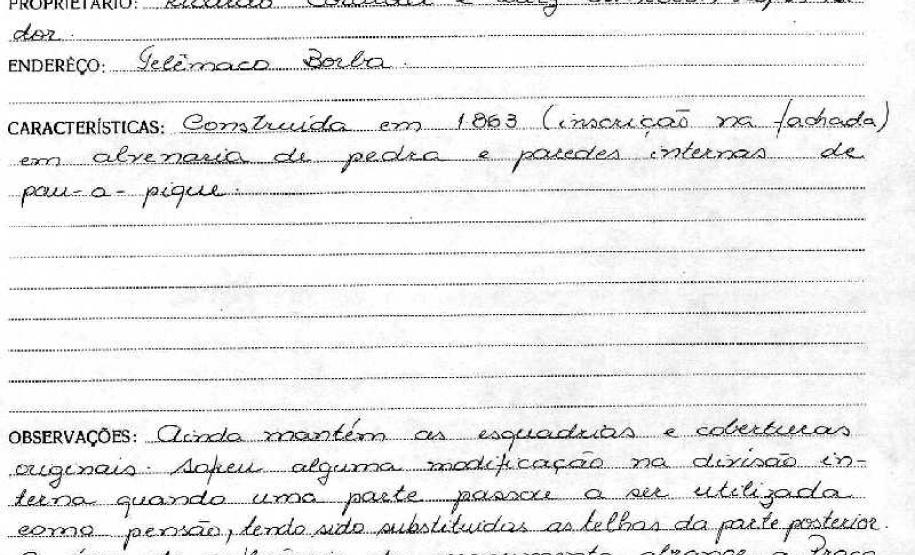 PROPRIETÁRIO:
dor.
ENDERÊÇO: Telêmaco Borba.
CARACTERÍSTICAS: Construída em 1.863 (inscrição na fachada)
em alvenaria de pedra e paredes internas de
pau-a-pique.
OBSERVAÇÕES: Ainda mantém as esquadrias e coberturas
originais. Sofreu alguma modificação na divisão in-
terna quando uma parte passou a ser utilizada
como pensão, tendo sido substituidas as telhas da parte posterior.
monumento abrange a Praça